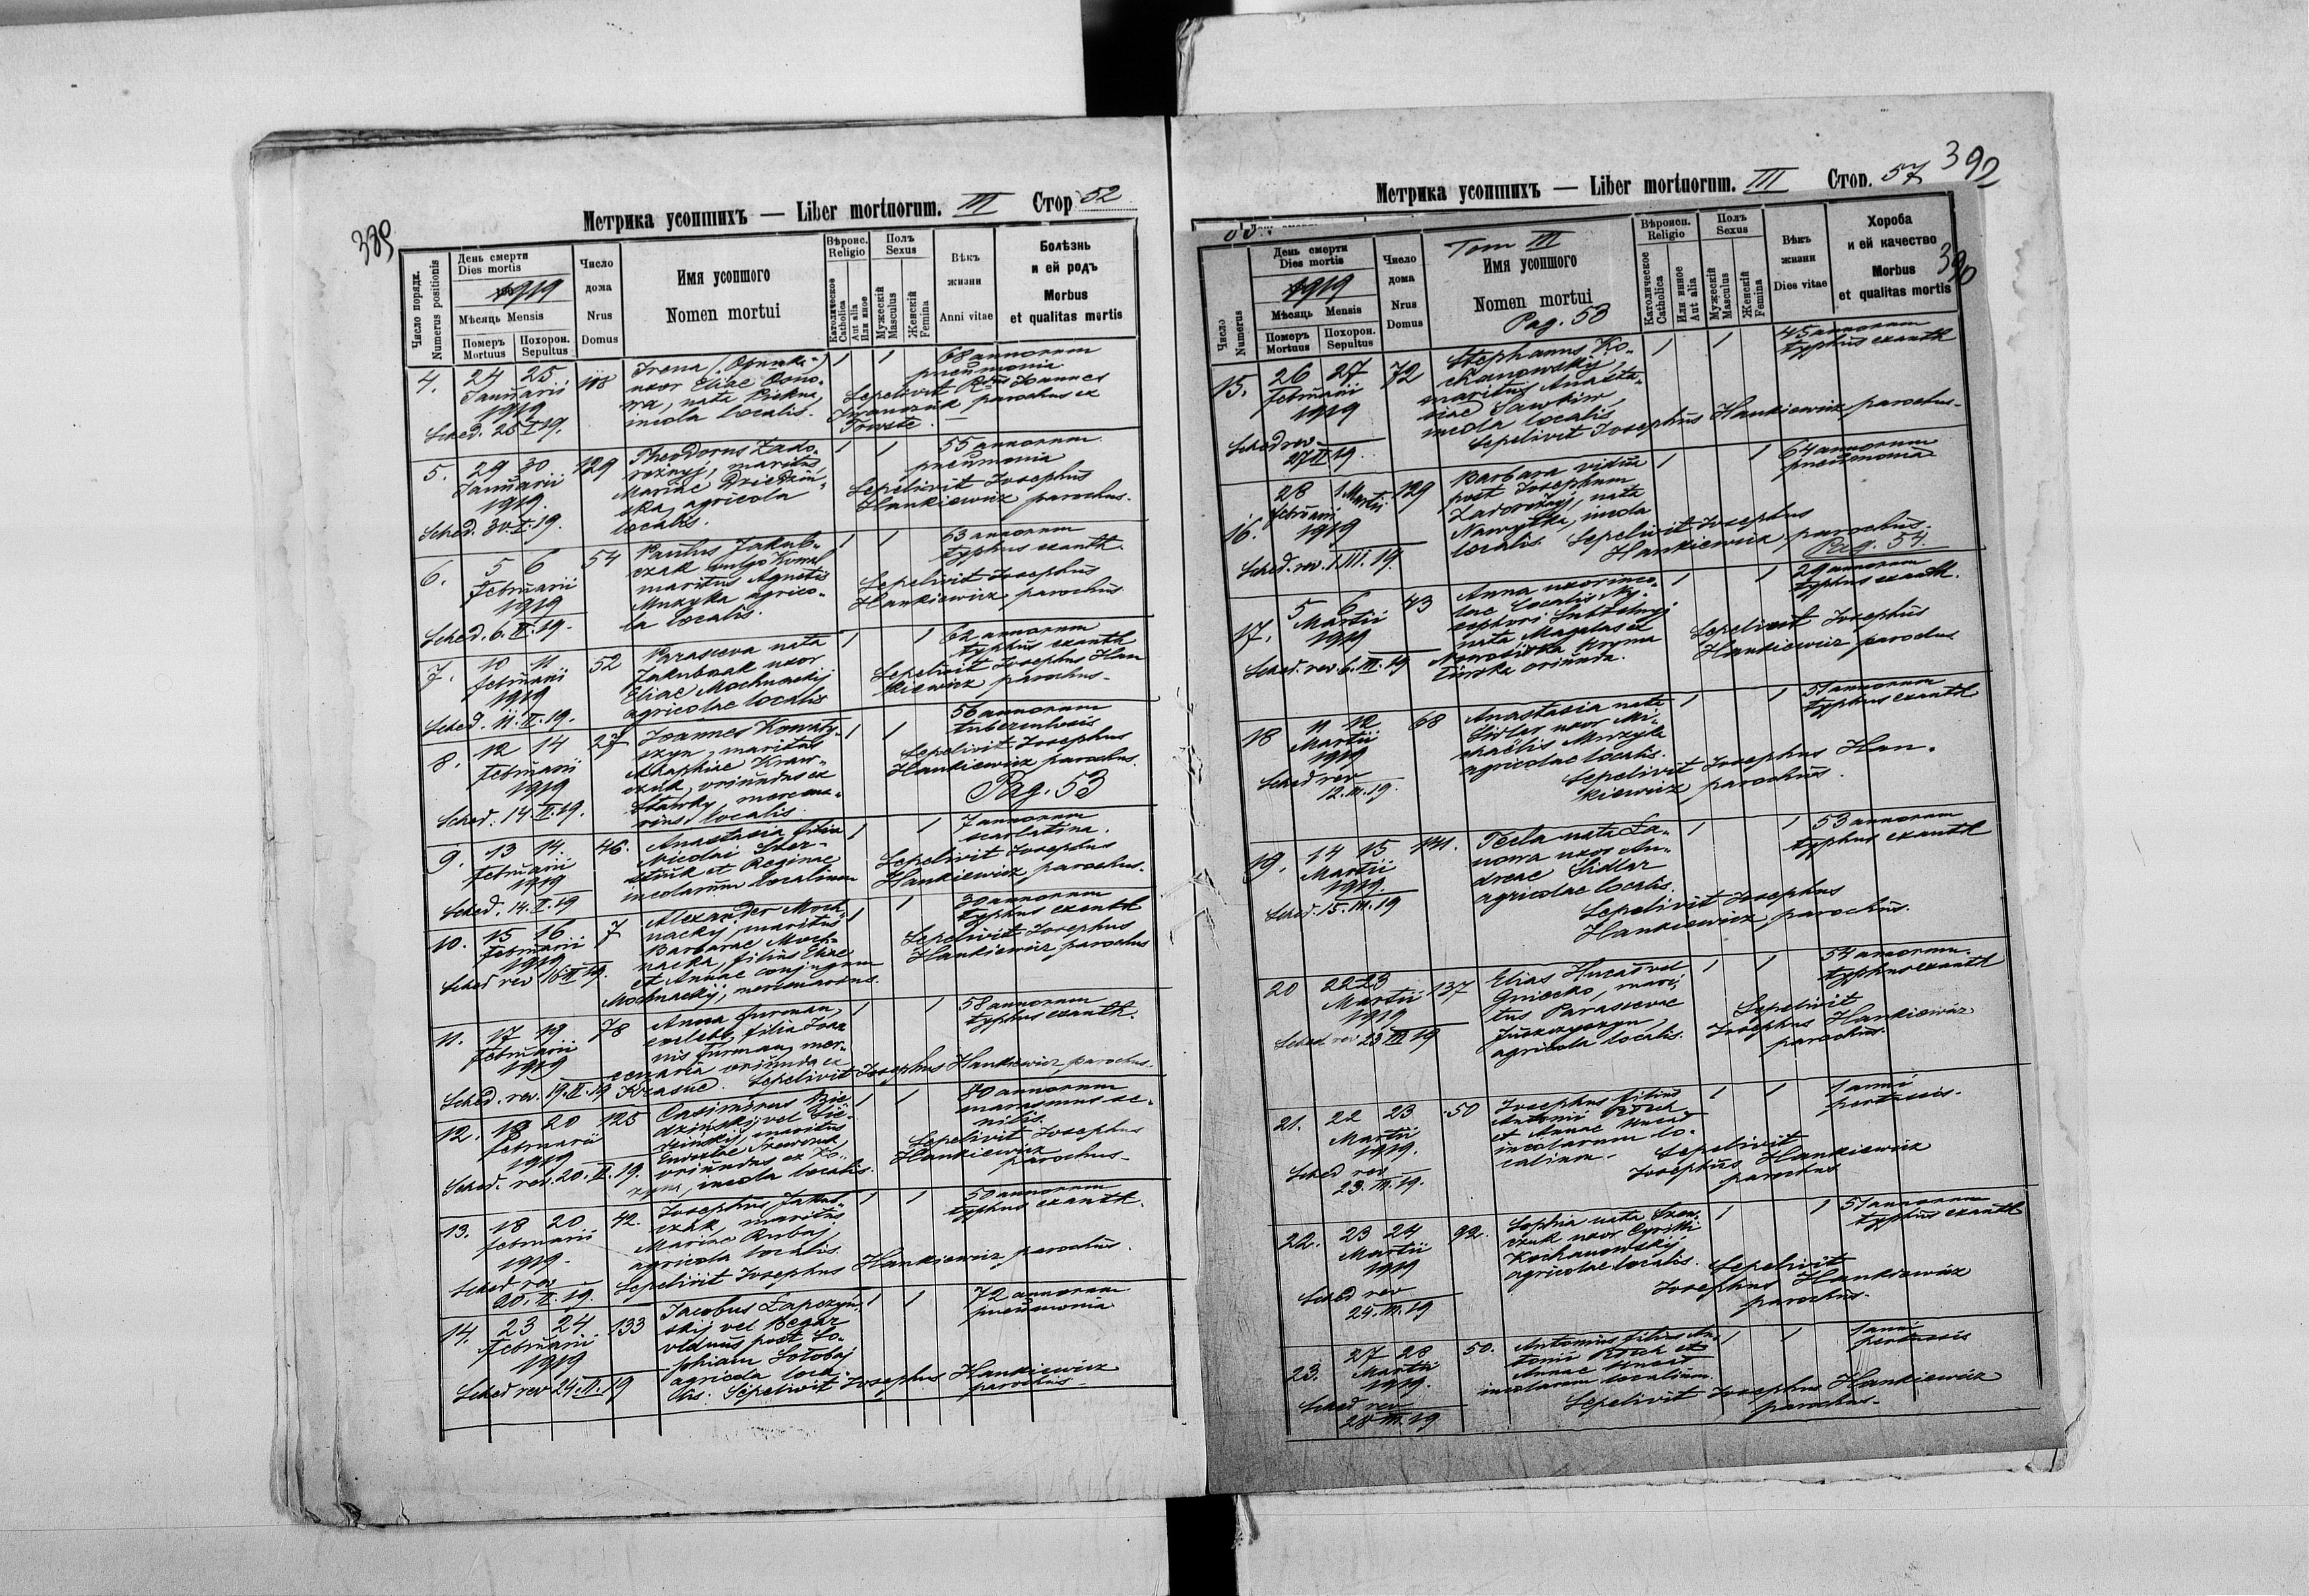 389
Метрика усопшихъ — Liber mortuorum. III Стор 52
Число порядк.
Numerus positionis
День смерти
Dies mortis
1919
Мѣсяць Mensis
Померъ
Mortuus
Похорон.
Sepultus
Число
дома
Nrus
Domus
Имя усопшого
Nomen mortui
Вѣроис.
Religio
Католическое
Catholica
Или иное
Aut alia
Полъ
Sexus
Мужескій
Masculus
Женскій
Femina
Вѣкъ
жизни
Anni vitae
Болѣзнь
и ей родъ
Morbus
et qualitas mortis
4. 24 25 Januarii 1919
Sched. 25 I 19.
118
Irena
uxor Eliae
nata Piekna,
incola localis.
1 1
68 annorum
pneumonia
Sepelivit Rdus Joannes
Iwanczuk parochus ex
Towste.
5. 29 30 Januarii 1919.
Sched. 30. I. 19.
129
Theodorus Zado-
rożnyj, maritus
Mariae Dziedzin-
ska, agricola
localis.
1 1
55 annorum
pneumonia
Sepelivit Josephus
Hankiewicz parochus.
6. 5 6 Februarii 1919
Sched. 6. II. 19.
54
Paulus Jakub-
czak vulgo
maritus Agnetis
Muzyka agrico-
la localis.
1 1
63 annorum
typhus exanth.
Sepelivit Josephus
Hankiewicz parochus
7. 10 11 Februarii 1919
Sched. 11. II. 19.
52
Parasceva nata
Jakubczak uxor
Eliae Mochnackij
agricolae localis
1 1
62 annorum
typhus exanth
Sepelivit Josephus Han
kiewicz parochus.
8. 12 14 Februarii 1919
Sched. 14 II. 19.
27
Joannes
maritus
Kraw-
czuk, oriundus ex
mercena-
rius localis
1 1
56 annorum
tuberculosis
Sepelivit Josephus
Hankiewicz parochus.
Pag. 53
9. 13 14. Februarii 1919
Sched. 14. II. 19
46.
Anastasia filia
Nicolai
et Reginae
incolarum localium
1 1
7 annorum
scarlatina.
Sepelivit Josephus
Hankiewicz parochus.
10. 15 16 Februarii 1919
Sched rev 16 II 19.
7
Alexander Moch
nackyj, maritus
Barbarae Moch-
nacka, filius Eliae
et Annae conjugum
Mochnackij, mercenarius.
1 1
typhus exanth
Sepelivit Josephus
Hankiewicz parochus
11. 17 19 Februarii 1919
Sched. rev. 19. II. 19
78
Anna Furman,
caelebs, filia Joan
nis Furman, mer-
cenaria oriunda ex
Krasne. Sepelivit Josephus Hankiewicz parochus.
1 1
58 annorum
typhus exanth.
12. 18 20 Februarii 1919
Sched. rev. 20. II. 19.
125
Casimirus
dzinskij vel
maritus
oriundus ex
incola localis.
1 1
80 annorum
marasmus se-
nilis.
Sepelivit Josephus
Hankiewicz
parochus.
13. 18 20 Februarii 1919.
Sched rev
20. II. 19.
42.
Josephus Jakub-
czak, maritus
Mariae Rubaj,
agricola localis.
Sepelivit Josephus Hankiewicz parochus.
1 1
50 annorum
typhus exanth.
14. 23 24. Februarii 1919
Sched rev 24. II. 19
133
Jacobus Łapczyn-
skij vel
viduus post So-
phiam
agricola loca-
lis. Sepelivit Josephus Hankiewicz
parochus.
1 1
72 annorum
pneumonia
Метрика усопшихъ — Liber mortuorum. III Стор. 57
392
390
Число
Numerus
День смерти
Dies mortis
1919
Мѣсяць Mensis
Померъ
Mortuus
Похорон.
Sepultus
Число
дома
Nrus
Domus
Tom III
Имя усопшого
Nomen mortui
Pag. 53
Вѣроисп.
Religio
Католическое
Catholica
Или инное
Aut alia
Полъ
Sexus
Мужескій
Masculus
Женскій
Femina
Вѣкъ
жизни
Dies vitae
Хороба
и ей качество
Morbus
et qualitas mortis
15. 26 27 Februarii 1919
Sched rev
27 II 19.
72
Stephanus Ko-
chanowskyj,
maritus Anasta-
siae Sawkiw,
incola localis
Sepelivit Josephus Hankiewicz parochus.
1 1
45 annorum
typhus exanth
16. 28 Februarii 1 Martii 1919
Sched. rev. 1. III. 19.
129
Barbara vidua
post Josephum
Zadorożnyj, nata
incola
localis. Sepelivit Josephus
Hankiewicz, parochus.
1 1
64 annorum
pneumonia
Pag. 54.
17. 5 6 Martii 1919
Sched. rev 6. III. 19
43
Anna uxor inco-
lae localis Ny-
cephori
nata
oriunda.
1 1
29 annorum
typhus exanth.
Sepelivit Josephus
Hankiewicz parochus
18 11 12 Martii 1919
Sched rev
12. III. 19.
68
Anastasia nata
Sidlar uxor Mi-
chaëlis Muzyka
agricolae localis.
Sepelivit Josephus Han-
kiewicz parochus.
1 1
51 annorum
typhus exanth
19. 14 15 Martii 1919.
Sched. 15. III. 19
141.
Tecla nata Ła-
nowa uxor An-
dreae Sidlar
agricolae localis.
Sepelivit Josephus
Hankiewicz, parochus.
1 1
53 annorum
typhus exanth
20 22 23 Martii 1919
Sched rev 23 III 19
137
Elias Hucał vel
Gniecko, mari-
tus Parascevae
agricola localis.
1 1
54 annorum.
typhus exanth
Sepelivit
Josephus Hankiewicz
parochus.
21. 22 23 Martii 1919.
Sched rev
23. III. 19.
50
Josephus filius
Antonii
et Annae Hucał
incolarum lo-
calium.
1 1
1 anni
pertussis.
Sepelivit
Josephus Hankiewicz
parochus
22. 23 24 Martii 1919
Sched rev
24. III. 19
92.
Sophia nata
uxor Cyrilli
Kochanowskij,
agricolae localis.
1 1
51 annorum
typhus exanth
Sepelivit
Josephus Hankiewicz
parochus.
23. 27 28 Martii 1919.
Sched rev
28 III. 19
50.
Antonius filius An-
tonii et
Annae Hucał
incolarum localium.
1 1
1 anni
pertussis
Sepelivit Josephus Hankiewicz
parochus.